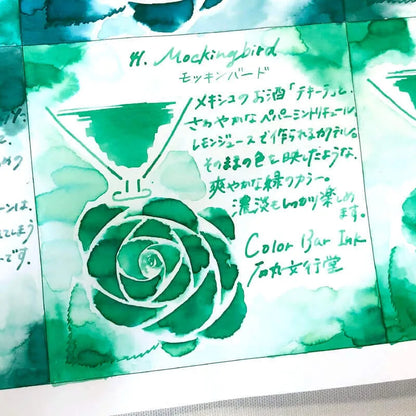 44. Mockingbird
モッキンバード
メキシコのお酒「テキーラ」と、
さわやかなペパーミントリキュール、
レモンジュースで作られるカクテル。
そのままの色を映したような、
爽やかな緑のカラー。
濃淡もしっかり楽しめ
ます。
Color Bar Ink
石丸文行堂
ーンは、
てしまう
ーです。